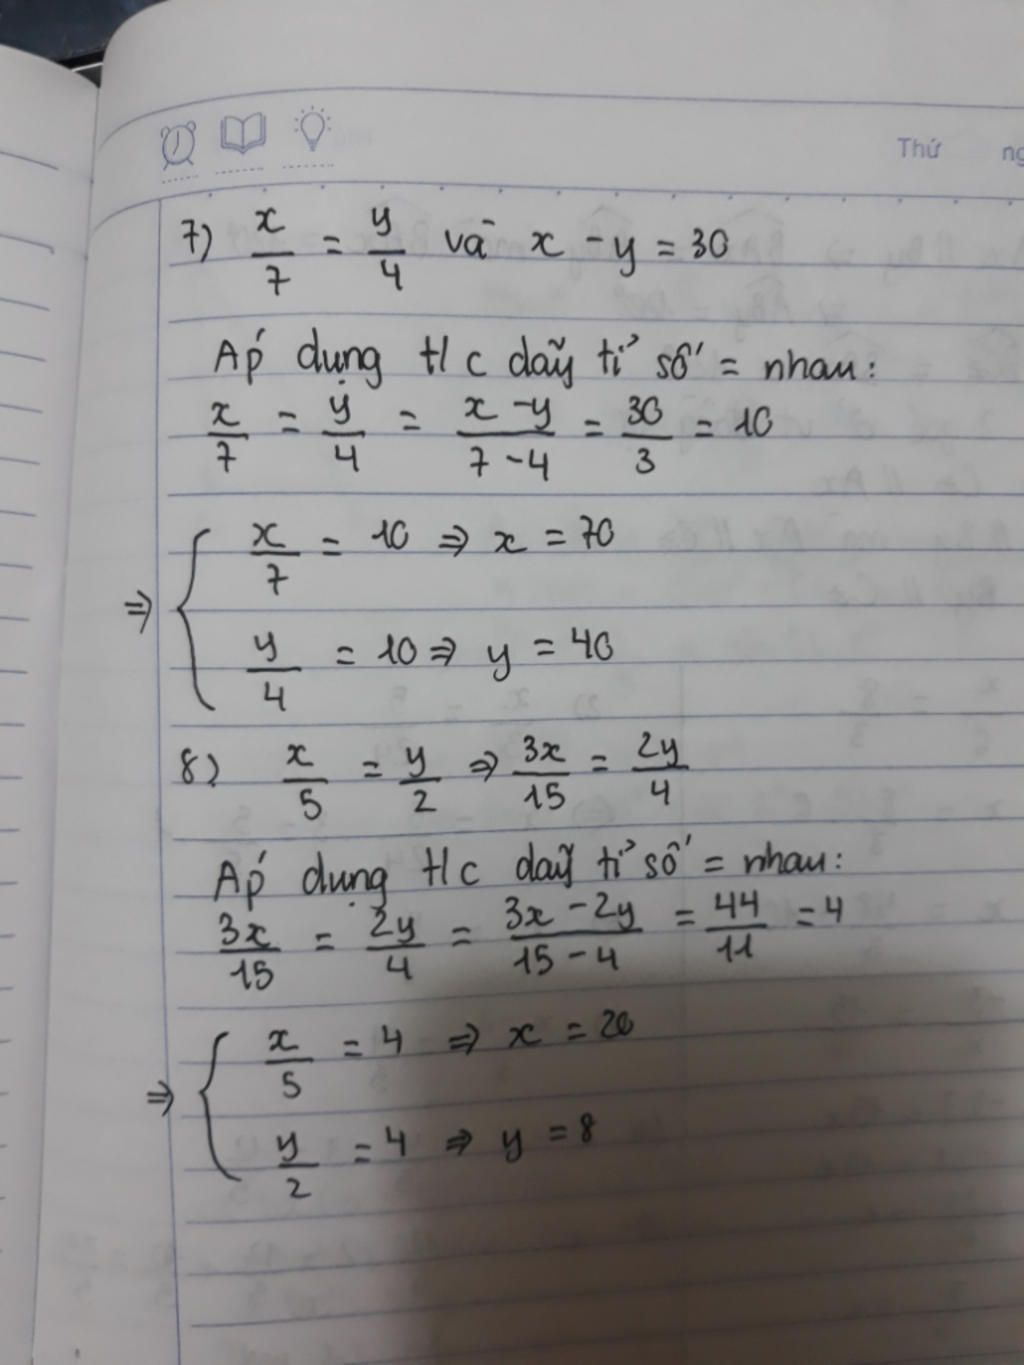 Thứ ng
7) x/7 = y/4 và x - y = 30
Áp dụng t/c dãy tỉ số = nhau:
x/7 = y/4 = (x - y)/(7 - 4) = 30/3 = 10
⇒ { x/7 = 10 ⇒ x = 70
y/4 = 10 ⇒ y = 40
8) x/5 = y/2 ⇒ 3x/15 = 2y/4
Áp dụng t/c dãy tỉ số = nhau:
3x/15 = 2y/4 = (3x - 2y)/(15 - 4) = 44/11 = 4
⇒ { x/5 = 4 ⇒ x = 20
y/2 = 4 ⇒ y = 8